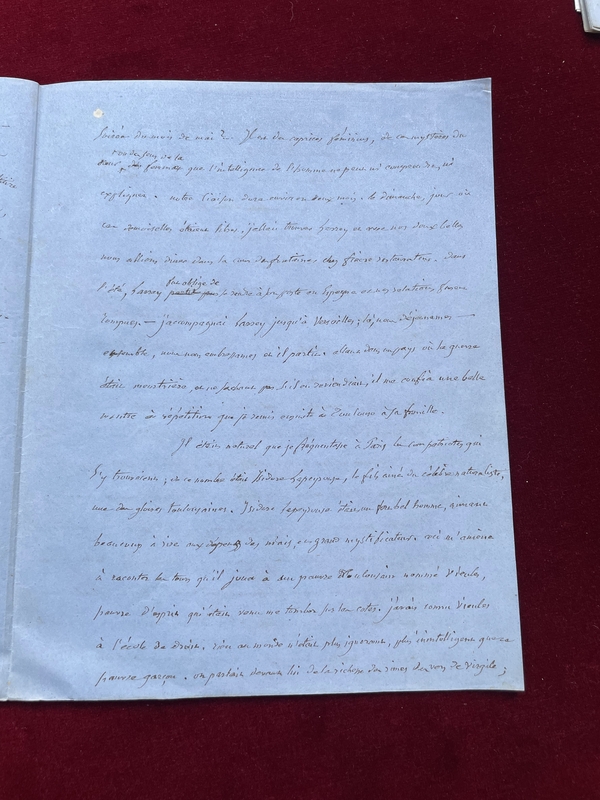 soirée du mois de mai ? Il est des caprices féminins, de ces mystères du
rendus, de la
que l'intelligence de l'homme ne peut ni comprendre, ni
expliquer. notre liaison dura environ deux mois. le dimanche, jour où
ces demoiselles étaient libres, j'allais trouver Larrey et avec nos deux belles
nous allions diner dans la rue des fontaines chez fièvre restaurateur. Dans
l'été, Larrey fut obligé de se rendre à son poste en Espagne et nos relations furent
rompues. — j'accompagnai Larrey jusqu'à Versailles ; là, nous déjeunames —
ensemble, nous nous embrassames et il partit. allant dans un pays où la guerre
était meurtrière, et ne sachant pas s'il en reviendrait, il me confia une belle
montre à répétition que je remis ensuite à Toulouse à sa famille.
Il était naturel que je fréquentasse à Paris les compatriotes qui
s'y trouvaient ; de ce nombre était Isidore Lapeyrouse, le fils ainé du célèbre naturaliste,
une des gloires toulousaines. Isidore Lapeyrouse était un fort bel homme, aimant
beaucoup à rire aux dépens des niais, en grand mystificateur. ceci m'amène
à raconter les tours qu'il joua à un pauvre Toulousain nommé
pauvre d'esprit qui était venu me tomber sur les cotes. j'avais connu
à l'école de droit. rien au monde n'était plus ignorant, plus inintelligent que ce
pauvre garçon. on parlait devant lui de la richesse des rimes des vers de Virgile ;